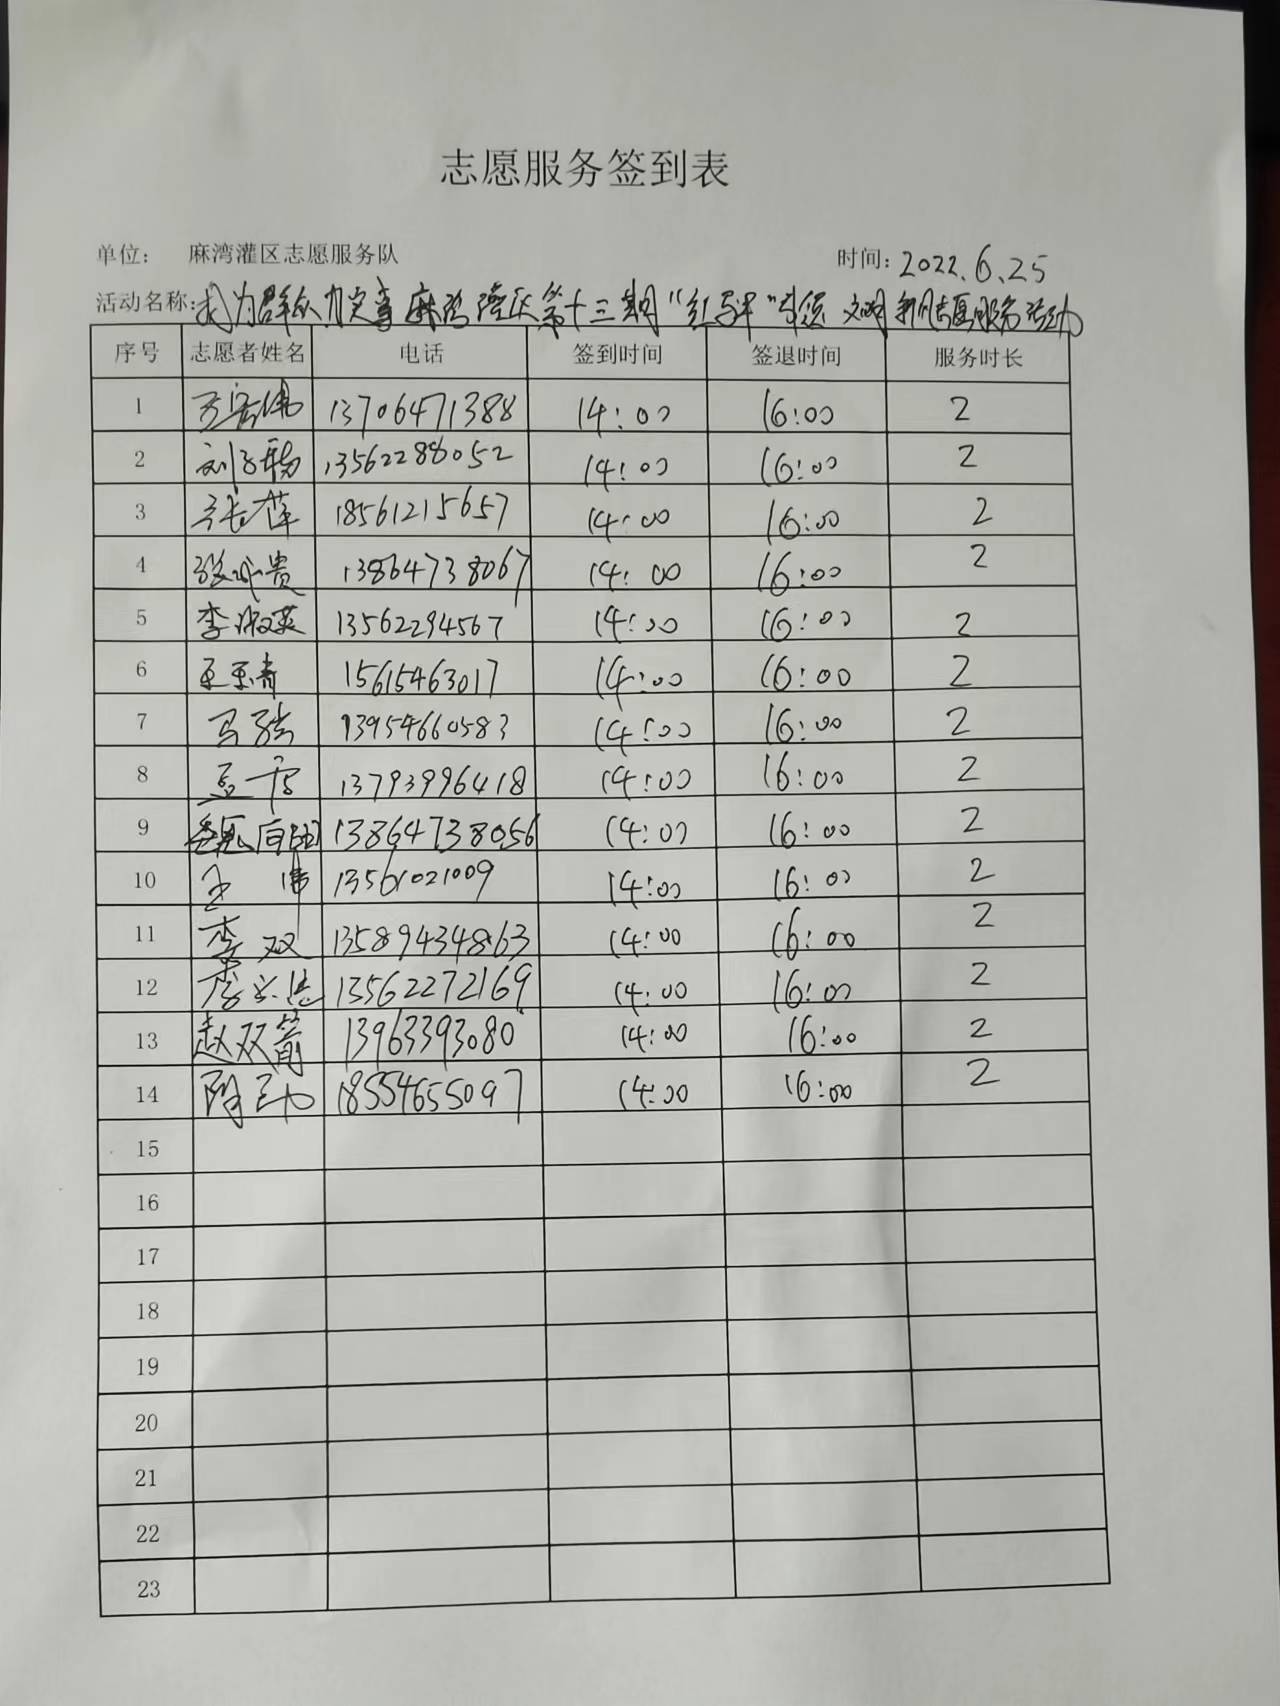 志愿服务签到表
单位： 麻湾灌区志愿服务队 时间：2022.6.25
活动名称：我为群众办实事麻湾灌区第十三期"红马甲"引领文明新风志愿服务活动
序号 志愿者姓名 电话 签到时间 签退时间 服务时长
1 13706471388 14:00 16:00 2
2 13562288052 14:00 16:00 2
3 张萍 18561215657 14:00 16:00 2
4 13864738067 14:00 16:00 2
5 李淑英 13562294567 14:00 16:00 2
6 王玉青 15615463017 14:00 16:00 2
7 13954660583 14:00 16:00 2
8 13793996418 14:00 16:00 2
9 魏向阳 13864738056 14:00 16:00 2
10 王伟 13561021009 14:00 16:00 2
11 李双 13589434863 14:00 16:00 2
12 13562272169 14:00 16:00 2
13 赵双箭 13963393080 14:00 16:00 2
14 18554655097 14:00 16:00 2
15
16
17
18
19
20
21
22
23